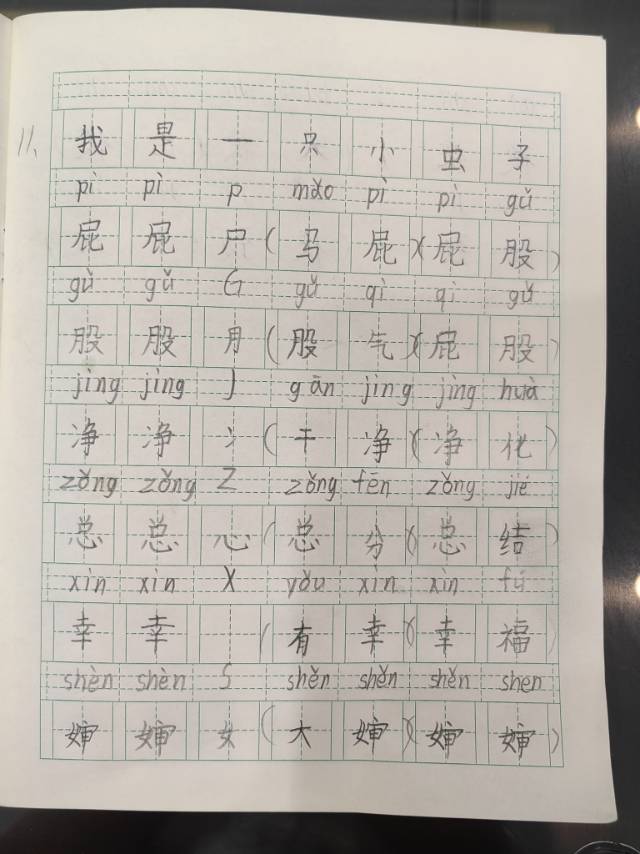 11、我是一只小虫子
pì pì p mǎo pì pì gǔ
屁 屁 尸 (马 屁)(屁 股)
gǔ gǔ G gǔ qì qì gǔ
股 股 月 (股 气)(屁 股)
jìng jìng J gān jìng jìng huà
净 净 冫 (干 净)(净 化)
zǒng zǒng Z zǒng fēn zǒng jié
总 总 心 (总 分)(总 结)
xìn xìn X yǒu xìn xìn fú
幸 幸 (有 幸)(幸 福)
shèn shèn S shěn shěn shěn shen
婶 婶 女 (大 婶)(婶 婶)